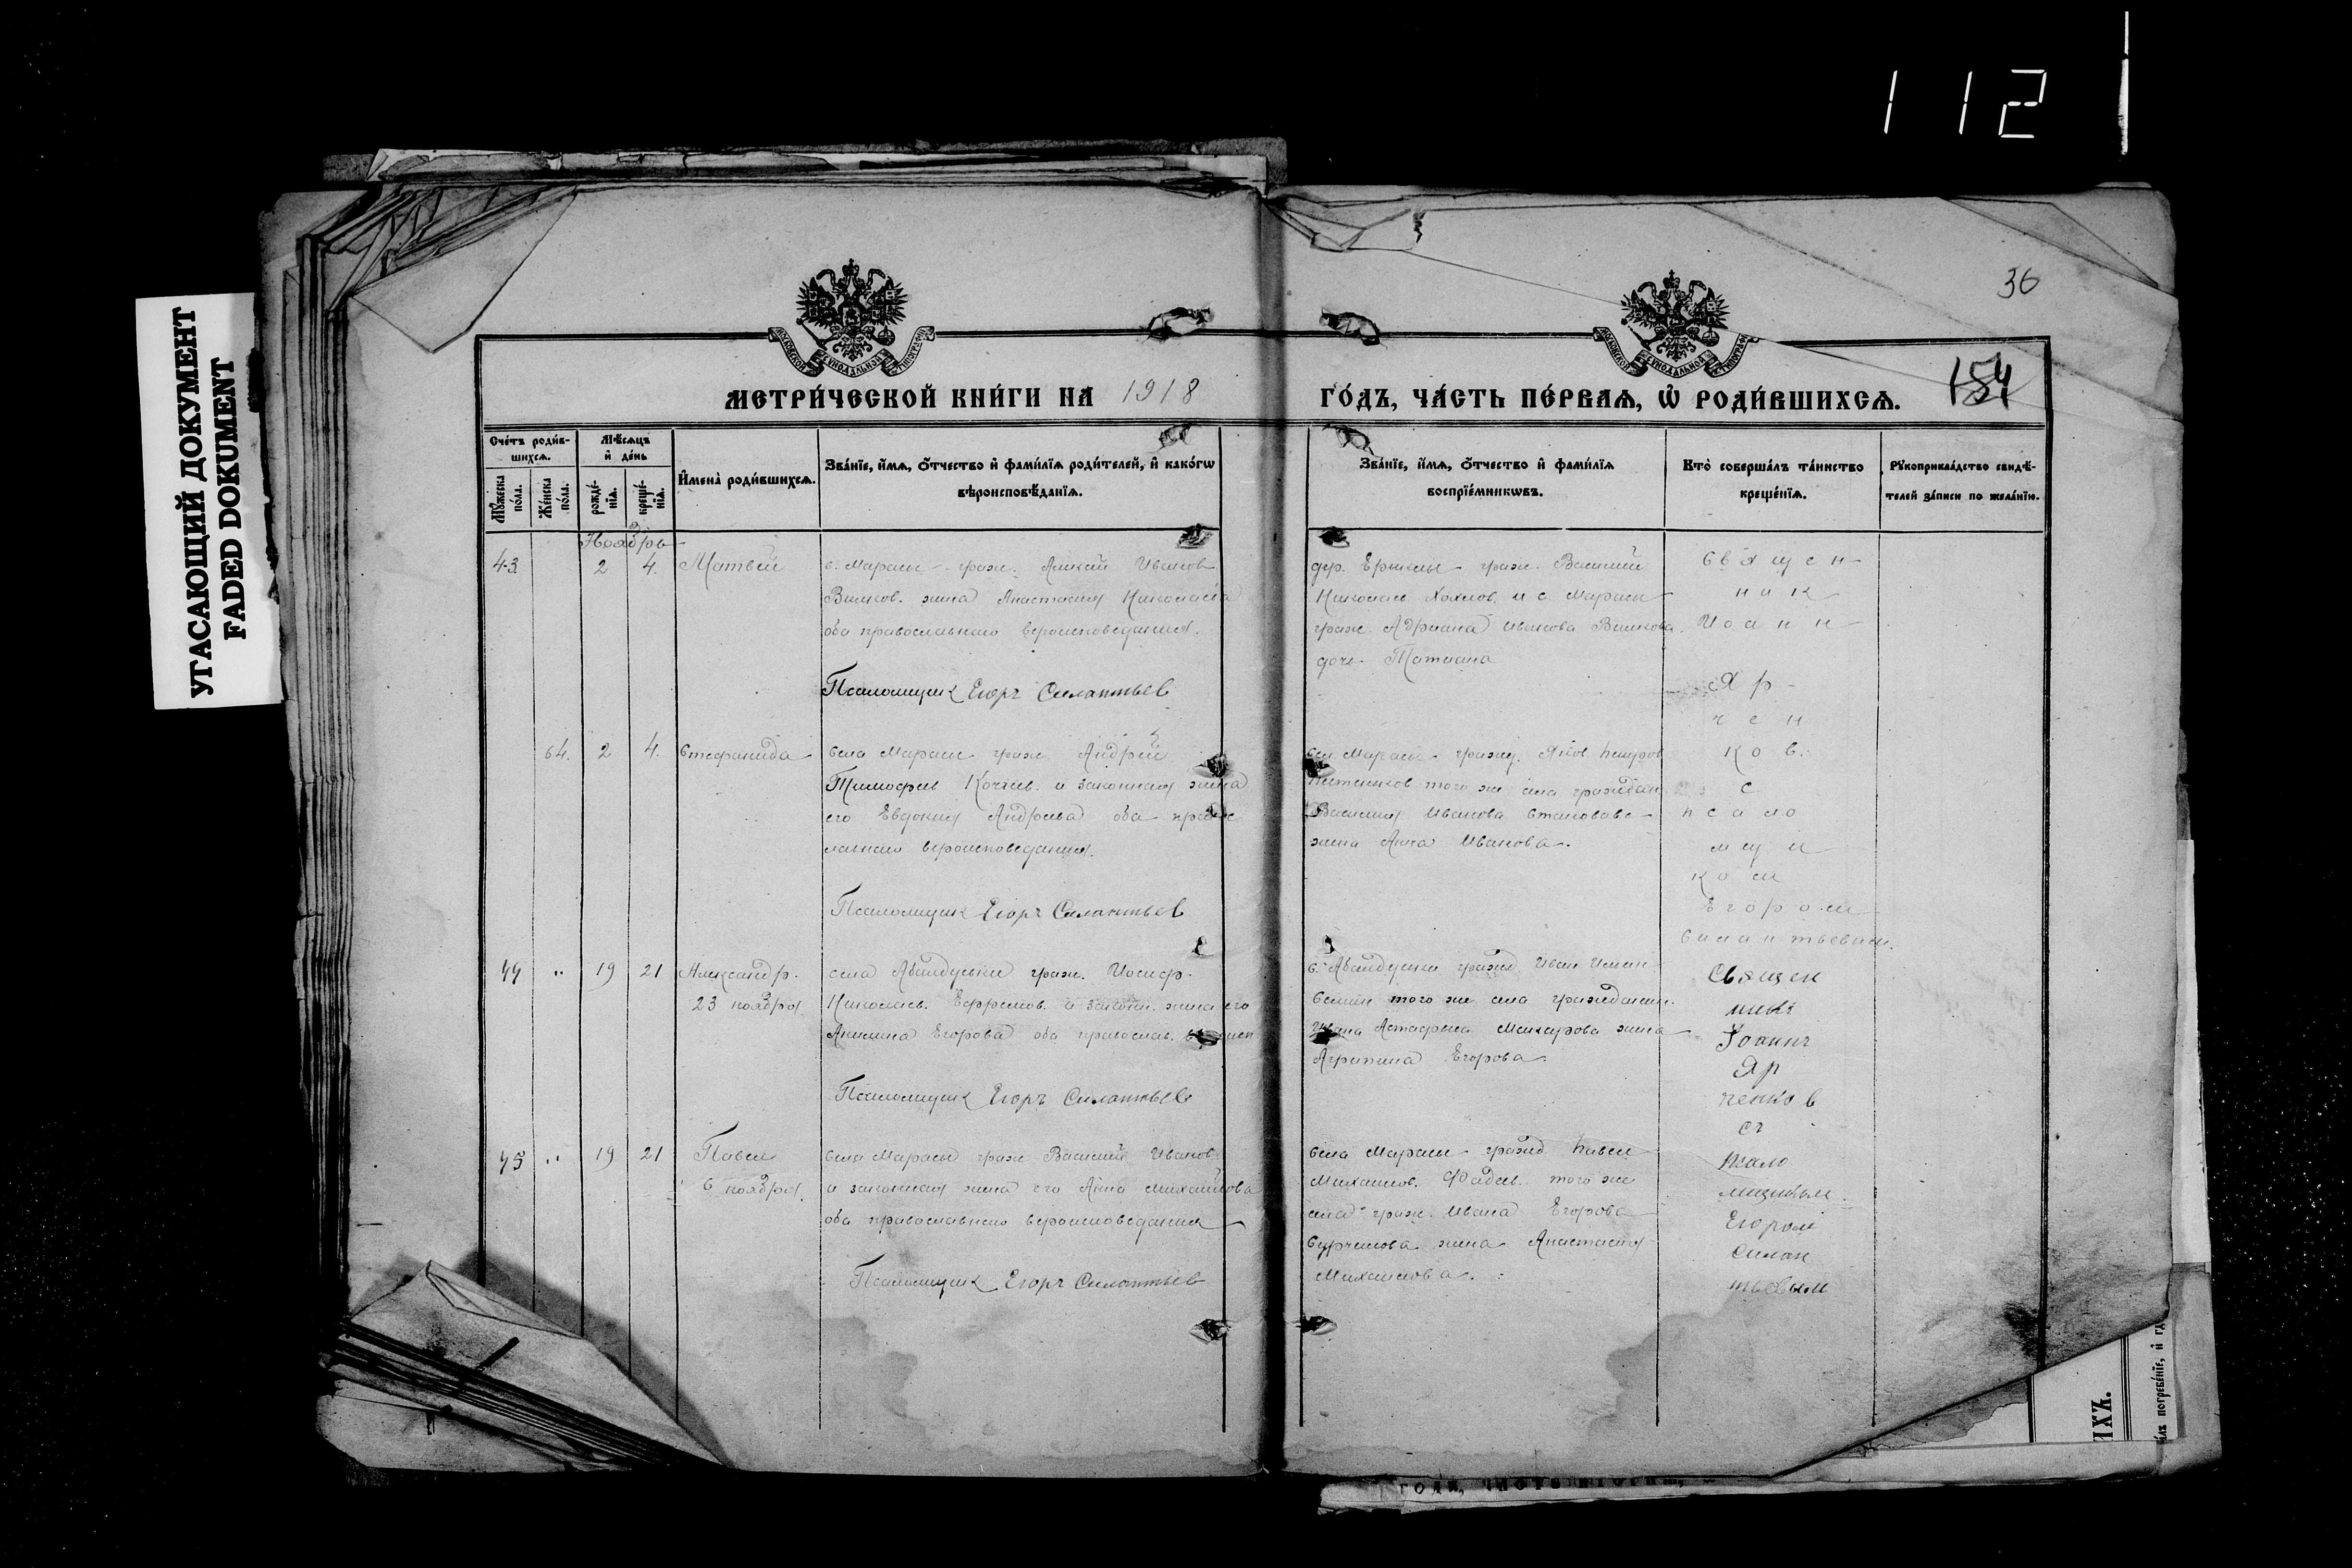 112
УГАСАЮЩИЙ ДОКУМЕНТ
FADED DOKUMENT
36
154
МЕТРИ́ЧЕСКОЙ КНИ́ГИ НА 1918 ГО́ДЪ, ЧА́СТЬ ПЕ́РВАѦ, Ѽ РОДИ́ВШИХСѦ.
Сче́тъ роди́в-
шихсѧ.
Мѣ́сѧцъ
и҆ де́нь
Мꙋ́жеска по́ла.
Же́нска по́ла.
рожде́-
нїѧ.
креще́-
нїѧ.
И҆мена̀ роди́вшихсѧ.
Зва́нїе, и҆́мѧ, ѻ҆́тчество и҆ фами́лїѧ роди́телей, и҆ како́гѡ
вѣроисповѣ́данїѧ.
Зва́нїе, и҆́мѧ, ѻ҆́тчество и҆ фами́лїѧ
воспрїе́мникѡвъ.
Кто̀ соверша́лъ та́инство
креще́нїѧ.
Рꙋкоприкла́дство свидѣ́-
телей за́писи по жела́нїю.
Ноябрь
43 2 4. Матвей
с. Марасы граж. Алексей Иванов
жена Анастасия Николаева
оба православнаго вероисповедания.
Псаломщик Егоръ Силантьев
дер. Ерыклы граж. Василий
Николаев Хохлов. и с. Марасы
граж. Адриана Иванова
дочь Татиана
Священ
ник
Иоанн
Яр
чен
ков.
с
псало
мщи
ком
Егором
Силантьевым.
64. 2 4. Стефанида
села Марасы граж Андрей
Тимофеев Кочаев. и законная жена
его Евдокия Андреева оба право
славнаго вероисповедания.
Псаломщик Егоръ Силантьев
сел Марасы гражд. Яков
того же села граждан
Василия Иванова
жена Анна Иванова.
44 " 19 21 Александр.
23 ноября
села Абалдуевки граж. Иосиф
Николаев. Ефремов. и законн. жена его
Акилина Егорова оба православ.
Псаломщик Егоръ Силантьев
с. Абалдуевки гражд Иван
того же села гражданин.
Ивана Астафьева Макарова жена
Агрипина Егорова.
Священ
никъ
Іоаннъ
Яр
ченков
съ
псало
мщиком
Егором
Силан
тьевым
45 " 19 21 Павел
6 ноября.
села Марасы граж Василий Иванов
и законная жена его Анна Михайлова
оба православнаго вероисповедания
Псаломщик Егоръ Силантьев
села Марасы гражд Павел
Михаилов. Фадеев. того же
села граж. Ивана Егорова
жена Анастасия
Михаилова.
ИХЪ.
погребе́нїе, и҆
ГОДЪ, ЧАСТЬ